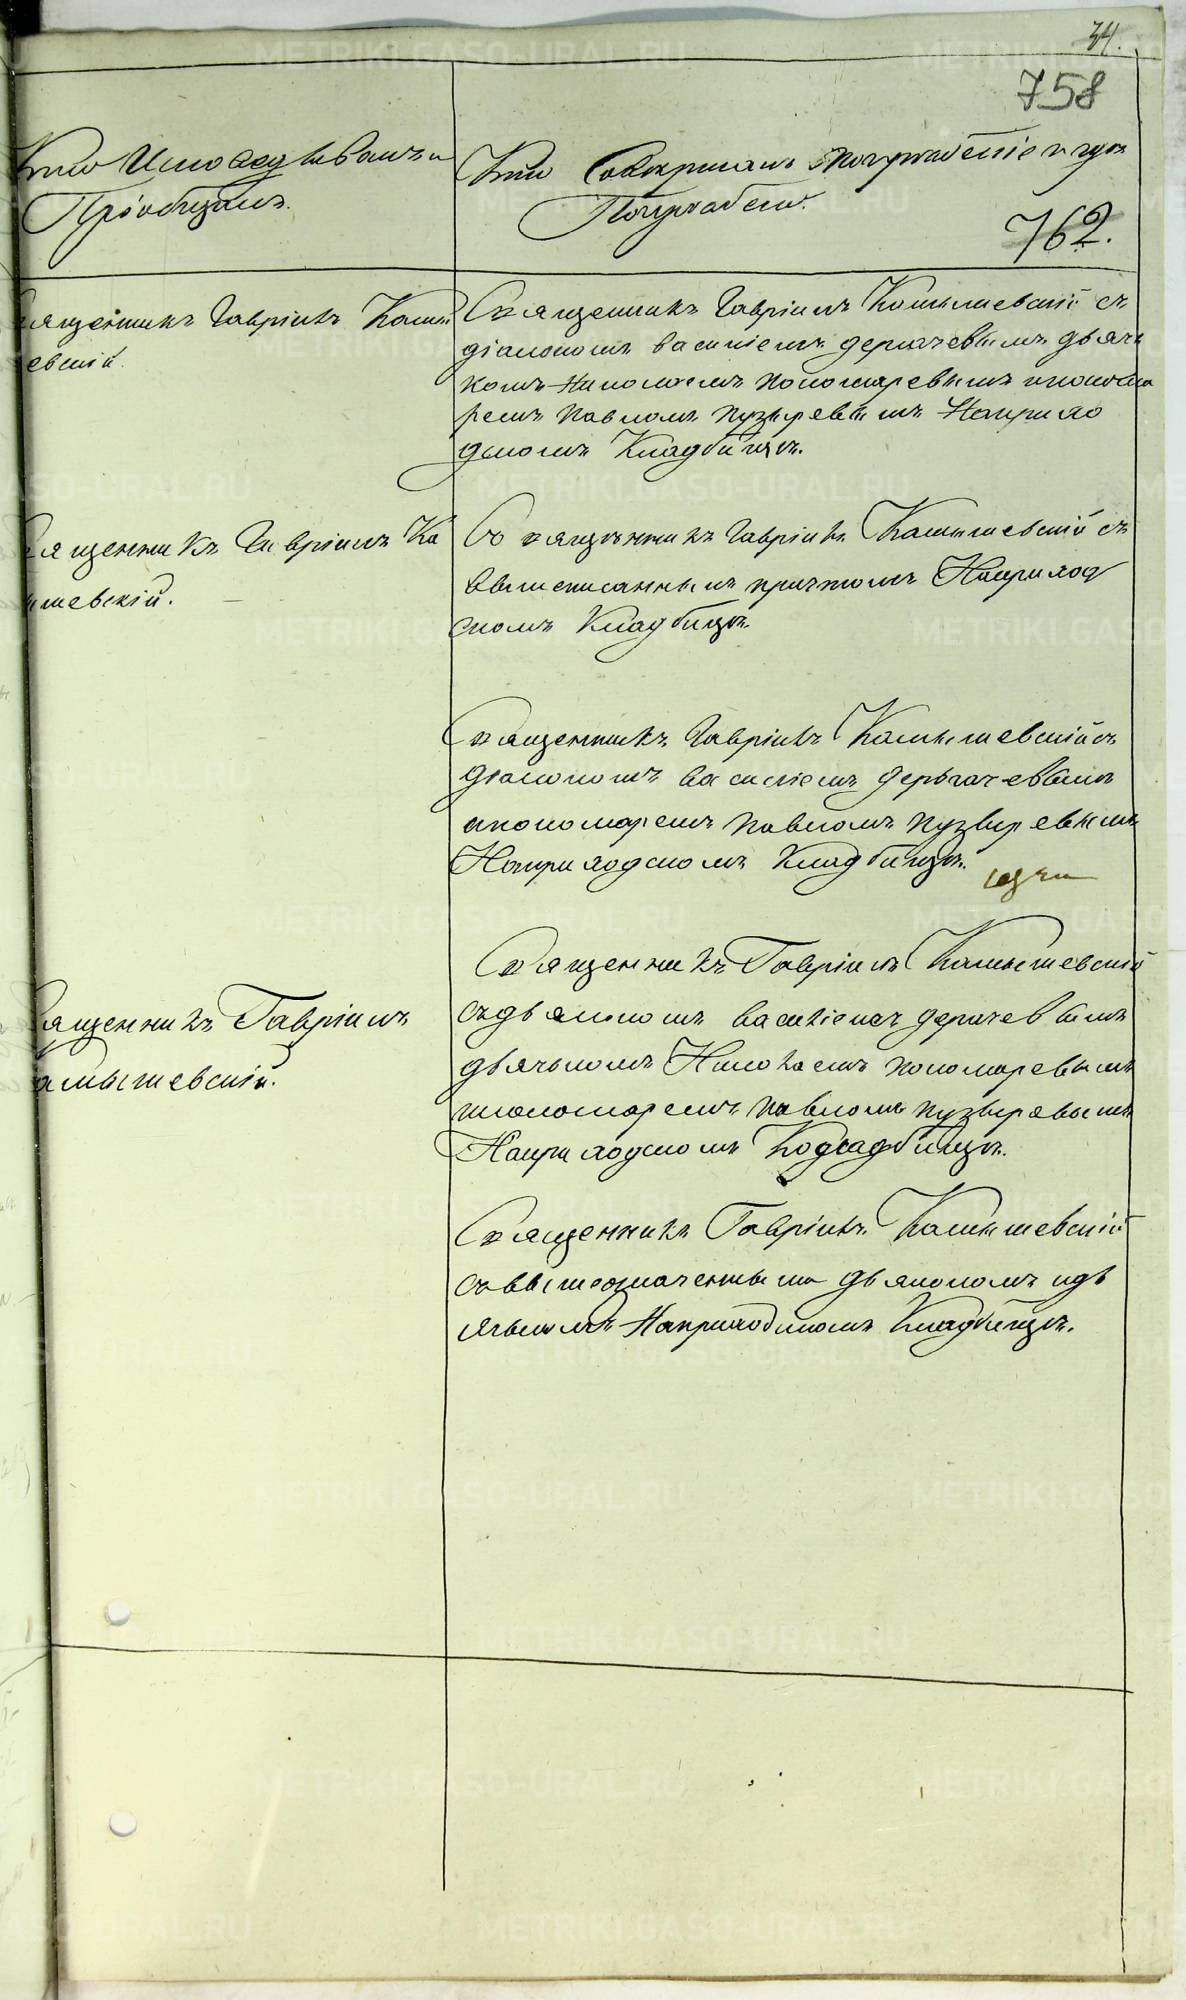 34.
758
Кто Исповедывалъ и
Пріобщалъ.
Кто Совершалъ Погребеніе и где
Погребены.
762.
священникъ Гавріилъ Камы
евскій.
Священникъ Гавріилъ Камышевскій съ
діакономъ василіемъ дергачевымъ дьяч
комъ Николаемъ пономаревымъ и понома
ремъ павломъ пузыревымъ На приход
скомъ Кладбищѣ.
вященникъ Гавріилъ Ка
мышевскій.
Священникъ Гавріилъ Камышевскій съ
вышеписаннымъ причтомъ На приход
скомъ Кладбищѣ.
Священникъ Гавріилъ Камышевскій съ
діакономъ василіемъ дергачевымъ
и пономаремъ павломъ пузыревымъ
На приходскомъ Кладбищѣ.
вященникъ Гавріилъ
амышевскій.
Священникъ Гавріилъ Камышевскій
съ дьякономъ василіемъ дергачевымъ
дьячькомъ Николаемъ пономаревымъ
и пономаремъ павломъ пузыревымъ
На приходскомъ Кладбищѣ.
Священникъ Гавріилъ Камышевскій
съ вышеозначеннымъ дьякономъ и дь
ячькомъ На приходскомъ Кладбищѣ.
METRIKI.GASO-URAL.RU